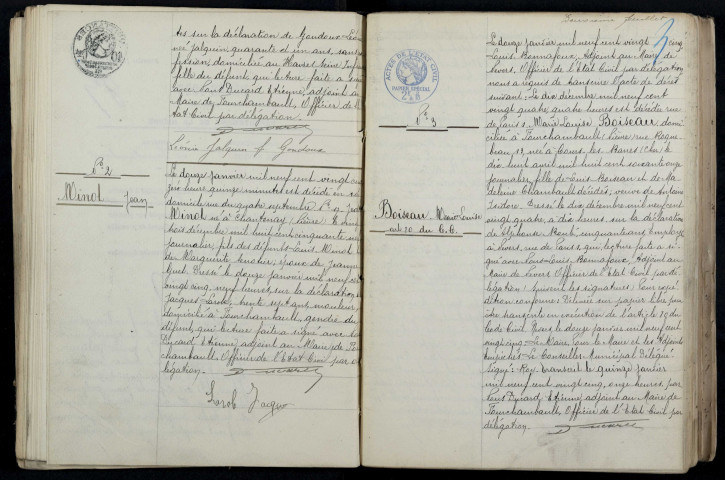 tes sur la déclaration de Gaudoux Léonie
née Jalquin quarante et un ans, sans
fession, domiciliée au Havre (Seine Inférieure)
fille du défunt, qui lecture faite a signé
avec Nous Ducard Etienne, adjoint au
Maire de Fourchambault, Officier de l'E
tat Civil par délégation.
Léonie Jalquin f. Gaudoux
N° 2
Minot Jean
Le douze janvier mil neuf cent vingt cinq
zéro heure quinze minutes est décédé en son
domicile rue du quatre septembre, Jean
Minot né à Chantenay (Nièvre) le vingt
trois décembre mil huit cent cinquante
journalier, fils des défunts Louis Minot
de Marguerite, époux de Jeanne
Dressé le douze janvier mil neuf cent
vingt cinq, neuf heures, sur la déclaration
Jacques Larob, trente sept ans, mouleur,
domicilié à Fourchambault, gendre du
défunt, qui lecture faite a signé avec Nous
Ducard Etienne, adjoint au Maire de Fo
chambault, Officier de l'Etat Civil par dé
légation.
Larob Jacques
Troisième feuillet
3
ACTES DE L'ETAT CIVIL
PAPIER SPECIAL
N° 3
Boiseau Marie Louise
Le douze janvier mil neuf cent vingt cinq
Louis Bonnafoux, Adjoint au Maire de
Nevers, Officier de l'Etat Civil par délégation
nous a requis de transcrire l'acte de décès
suivant: Le dix décembre mil neuf cent
vingt quatre, quatre heures est décédée rue
de Paris, Marie Louise Boiseau domi
ciliée à Fourchambault (Nièvre) rue
née à Cours les Barres (Cher) le
dix huit avril mil huit cent soixante onze
journalière, fille de Louis Boiseau et de Ma
deleine Chambault décédés, veuve de Antoine
Isidore. Dressé le dix décembre mil neuf cent
vingt quatre, à dix heures, sur la déclaration
de Alphonse, cinquante ans, employé
à Nevers, rue de Paris, qui, lecture faite a si
gné avec Nous Louis Bonnafoux, Adjoint au
Maire de Nevers Officier de l'Etat Civil par dé
légation. Suivent les signatures. Pour expé
dition conforme délivrée sur papier libre pour
être transcrit en exécution de l'article du
Code Civil. Nevers le douze janvier mil neuf cent
vingt cinq. Le Maire, pour le Maire et les Adjoints
empêchés Le Conseiller Municipal Délégué
Signé: Rey. Transcrit le quinze janvier
mil neuf cent vingt cinq, onze heures, par
Nous Ducard Etienne, adjoint au Maire de
Fourchambault, Officier de l'Etat Civil par
délégation.